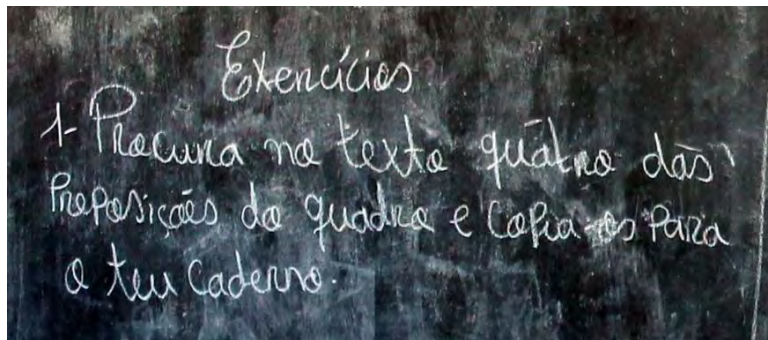 Exercícios
1- Procura no texto quátro dās
Preposições do quadro e Copia-os Para
o teu Caderno.